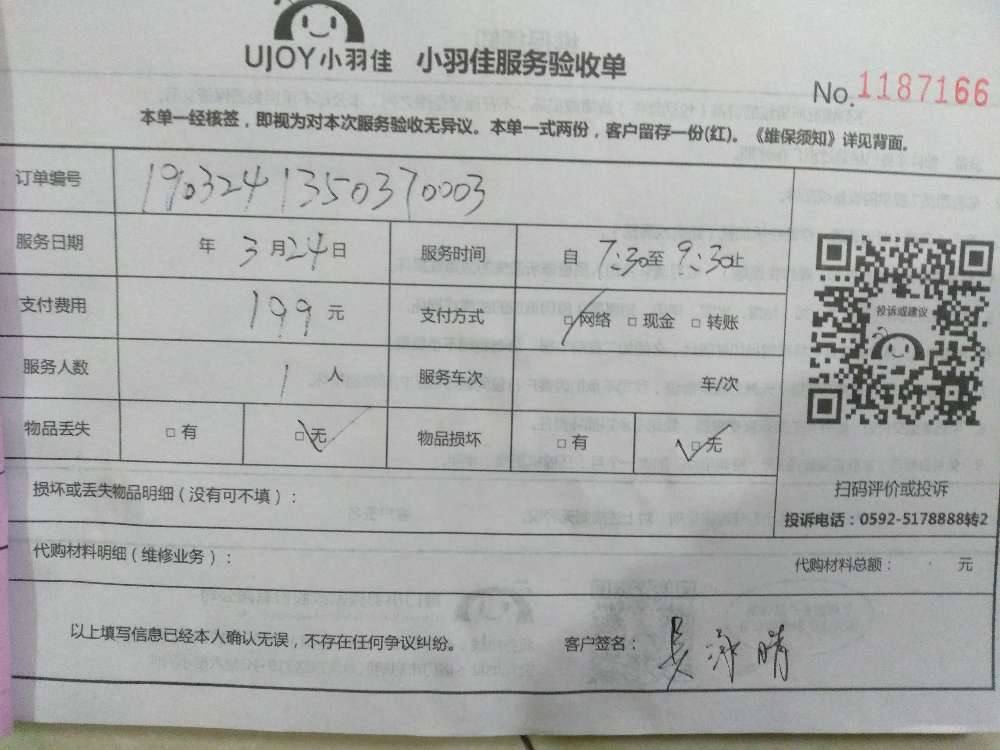 UJOY小羽佳 小羽佳服务验收单
No. 1187166
本单一经核签，即视为对本次服务验收无异议。本单一式两份，客户留存一份(红)。《维保须知》详见背面。
订单编号 1903241350370003
服务日期 年 3月24日 服务时间 自 7:30至 9:30止
支付费用 199 元 支付方式 □网络 □现金 □转账
服务人数 1 人 服务车次 车/次
物品丢失 □有 □无 物品损坏 □有 □无
投诉或建议
扫码评价或投诉
投诉电话：0592-5178888转2
损坏或丢失物品明细（没有可不填）：
代购材料明细（维修业务）： 代购材料总额： 元
以上填写信息已经本人确认无误，不存在任何争议纠纷。 客户签名：